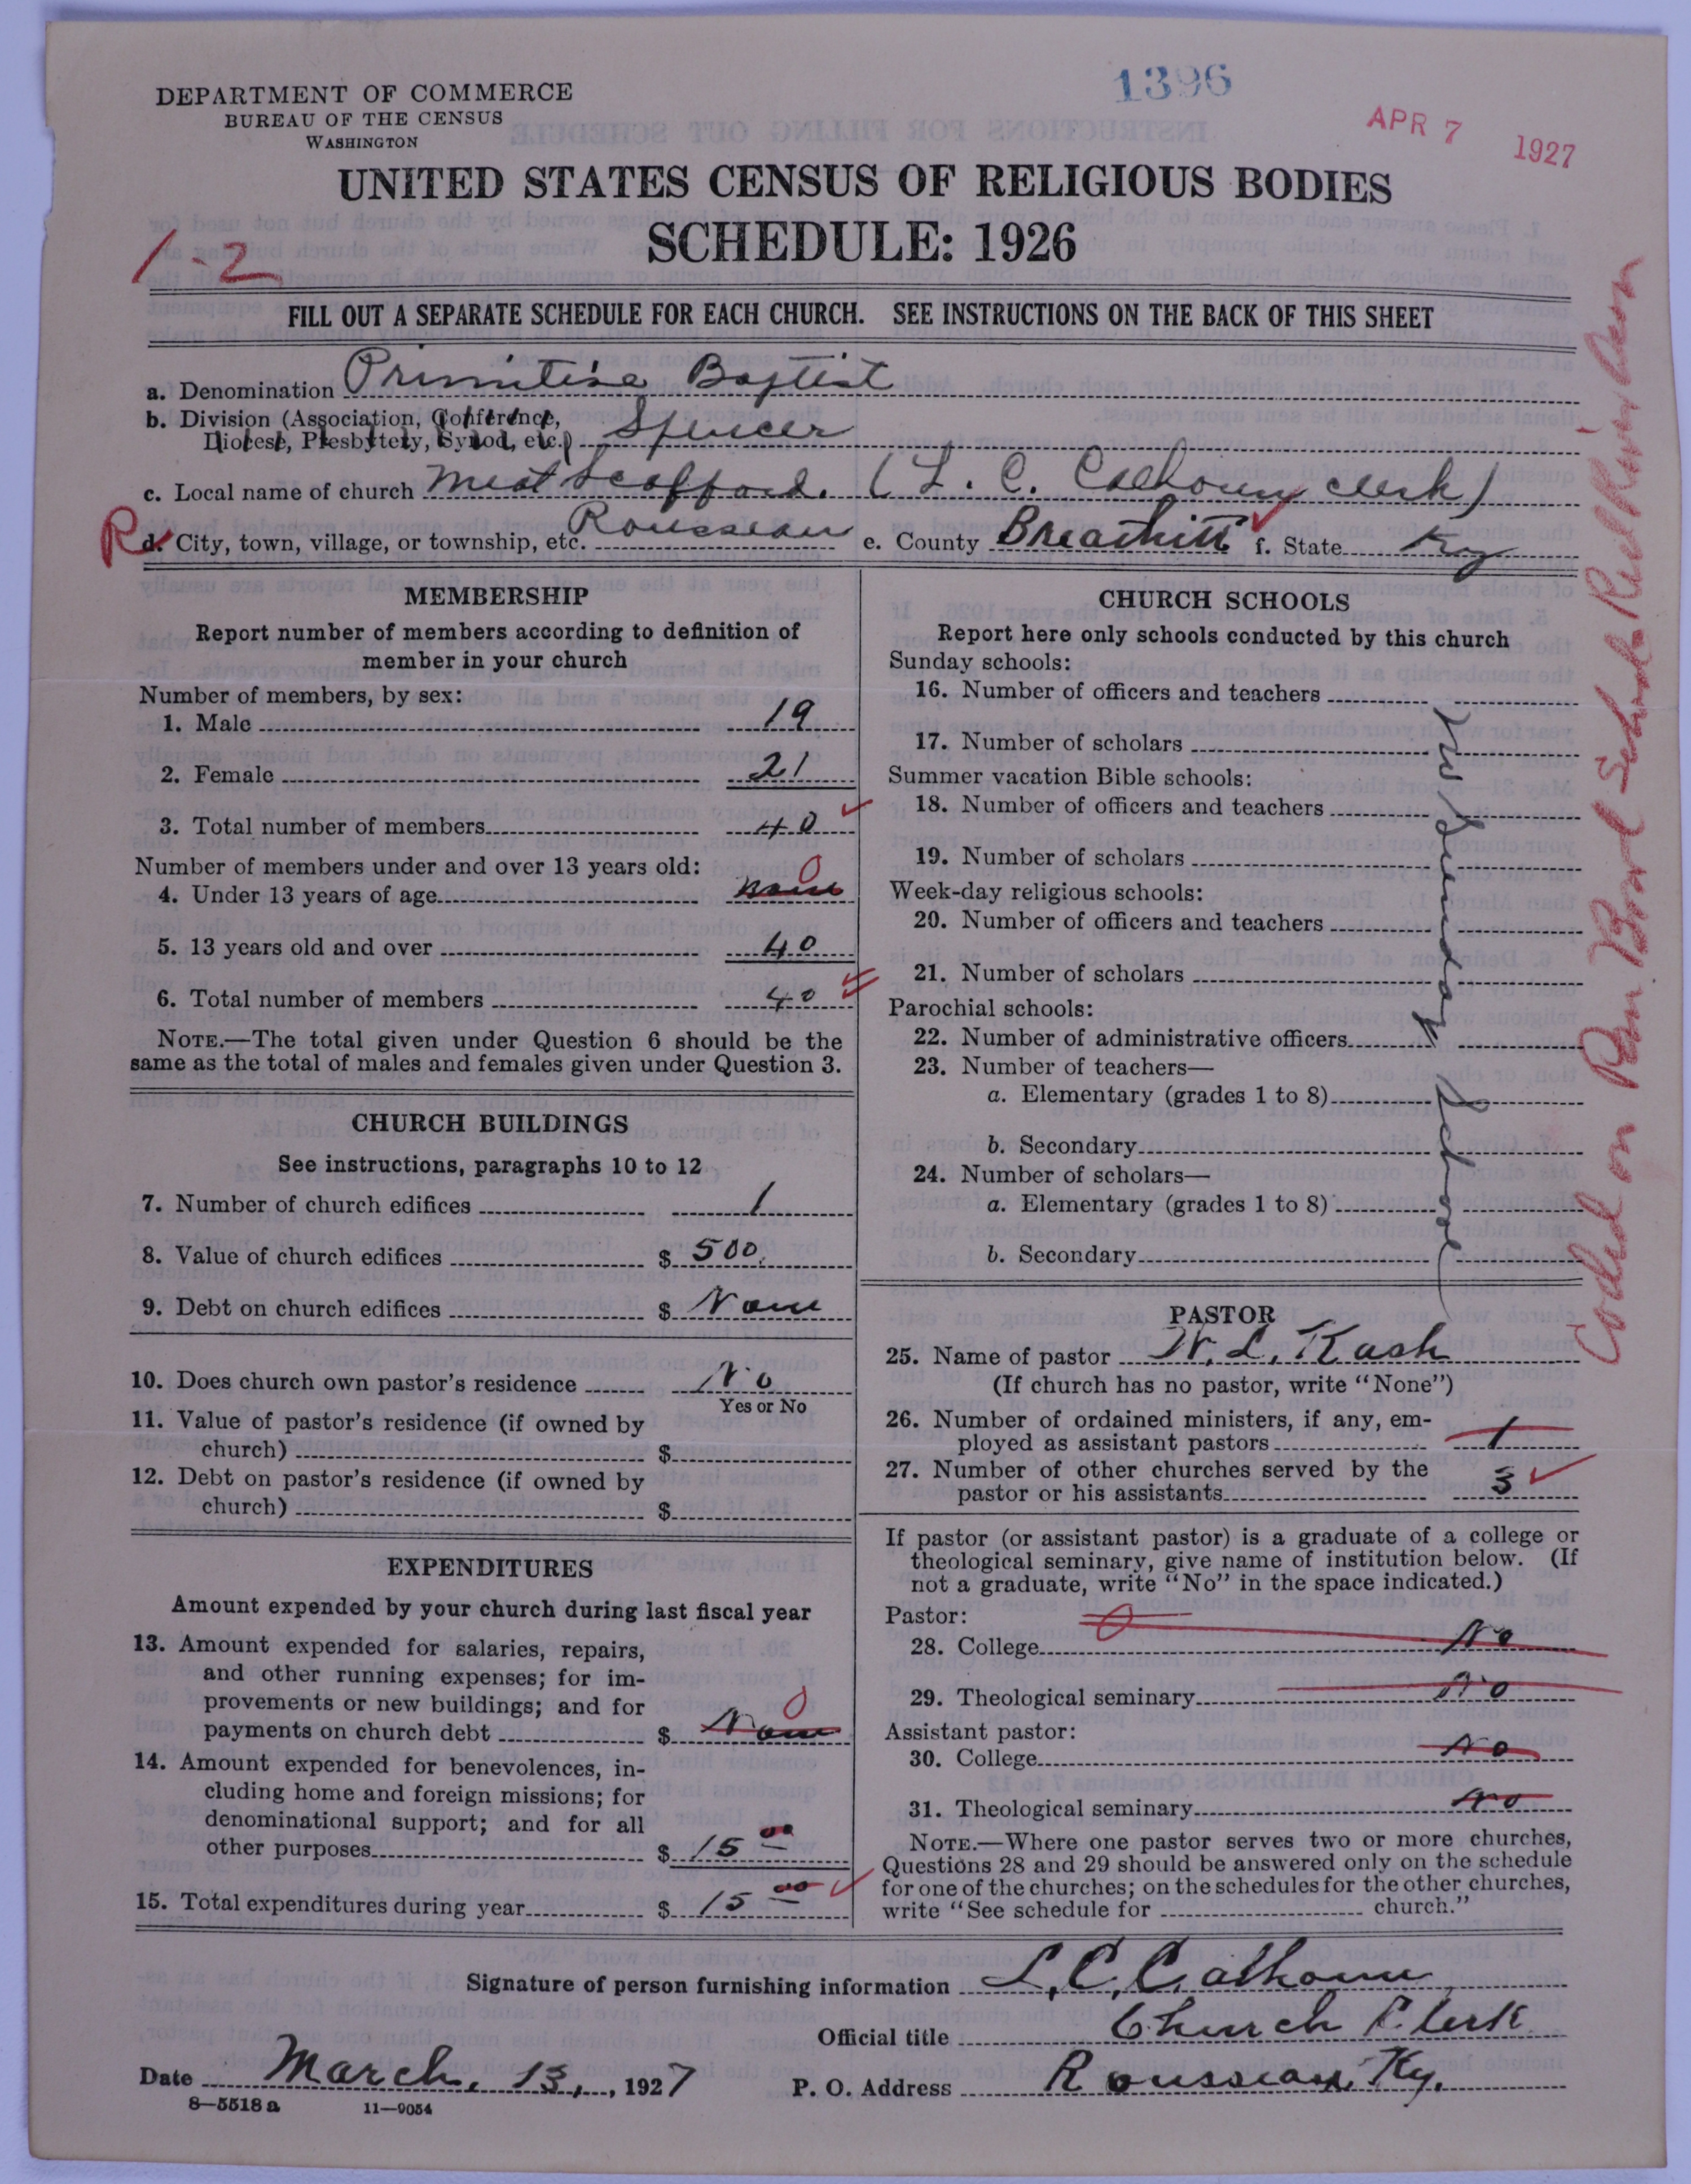 DEPARTMENT OF COMMERCE
BUREAU OF THE CENSUS
WASHINGTON
1396
APR 7 1927
UNITED STATES CENSUS OF RELIGIOUS BODIES
SCHEDULE: 1926
1-2
FILL OUT A SEPARATE SCHEDULE FOR EACH CHURCH. SEE INSTRUCTIONS ON THE BACK OF THIS SHEET
a. Denomination Primitive Baptist
b. Division (Association, Conference,
Diocese, Presbytery, Synod, etc.) Spencer
c. Local name of church Meat Scafford. (L. C. Calhoun clerk)
R d. City, town, village, or township, etc. Rousseau e. County Breathitt f. State Ky
MEMBERSHIP
Report number of members according to definition of
member in your church
Number of members, by sex:
1. Male 19
2. Female 21
3. Total number of members 40
Number of members under and over 13 years old: 0
4. Under 13 years of age none
5. 13 years old and over 40
6. Total number of members 40
NOTE.—The total given under Question 6 should be the
same as the total of males and females given under Question 3.
CHURCH BUILDINGS
See instructions, paragraphs 10 to 12
7. Number of church edifices 1
8. Value of church edifices $ 500.
9. Debt on church edifices $ None
10. Does church own pastor's residence No
Yes or No
11. Value of pastor's residence (if owned by
church) $
12. Debt on pastor's residence (if owned by
church) $
EXPENDITURES
Amount expended by your church during last fiscal year
13. Amount expended for salaries, repairs,
and other running expenses; for im-
provements or new buildings; and for 0
payments on church debt $ None
14. Amount expended for benevolences, in-
cluding home and foreign missions; for
denominational support; and for all
other purposes $ 15 00
15. Total expenditures during year $ 15 00
CHURCH SCHOOLS
Report here only schools conducted by this church
Sunday schools:
16. Number of officers and teachers
17. Number of scholars
Summer vacation Bible schools:
18. Number of officers and teachers
19. Number of scholars
Week-day religious schools:
20. Number of officers and teachers
21. Number of scholars
Parochial schools:
22. Number of administrative officers
23. Number of teachers—
a. Elementary (grades 1 to 8)
b. Secondary
24. Number of scholars—
a. Elementary (grades 1 to 8)
b. Secondary
No Sunday School
PASTOR
25. Name of pastor W. L. Kash
(If church has no pastor, write "None")
26. Number of ordained ministers, if any, em-
ployed as assistant pastors 1
27. Number of other churches served by the
pastor or his assistants 3
If pastor (or assistant pastor) is a graduate of a college or
theological seminary, give name of institution below. (If
not a graduate, write "No" in the space indicated.)
Pastor: 0
28. College No
29. Theological seminary No
Assistant pastor:
30. College No
31. Theological seminary No
NOTE.—Where one pastor serves two or more churches,
Questions 28 and 29 should be answered only on the schedule
for one of the churches; on the schedules for the other churches,
write "See schedule for church."
Signature of person furnishing information L. C. Calhoun
Official title Church Clerk
Date March. 13, 1927 P. O. Address Rousseau, Ky.
8—5518 a 11—9054
Coded on